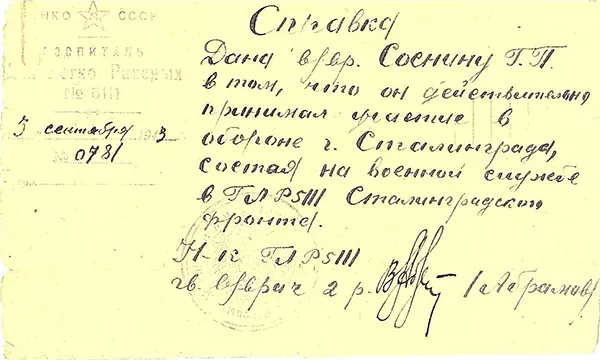 Справка
НКО СССР
Госпиталь
для Легко-Раненых
№ 5111
5 сентября 1943
№ 0731
Дана в/вр. Соснину Г. П.
в том, что он действительно
принимал участие в
обороне г. Сталинграда,
состоя на военной службе
в ГЛР 5111 Сталинградского
фронта.
Н-к ГЛР 5111
гв. в/врач 2 р. /Абрамов/